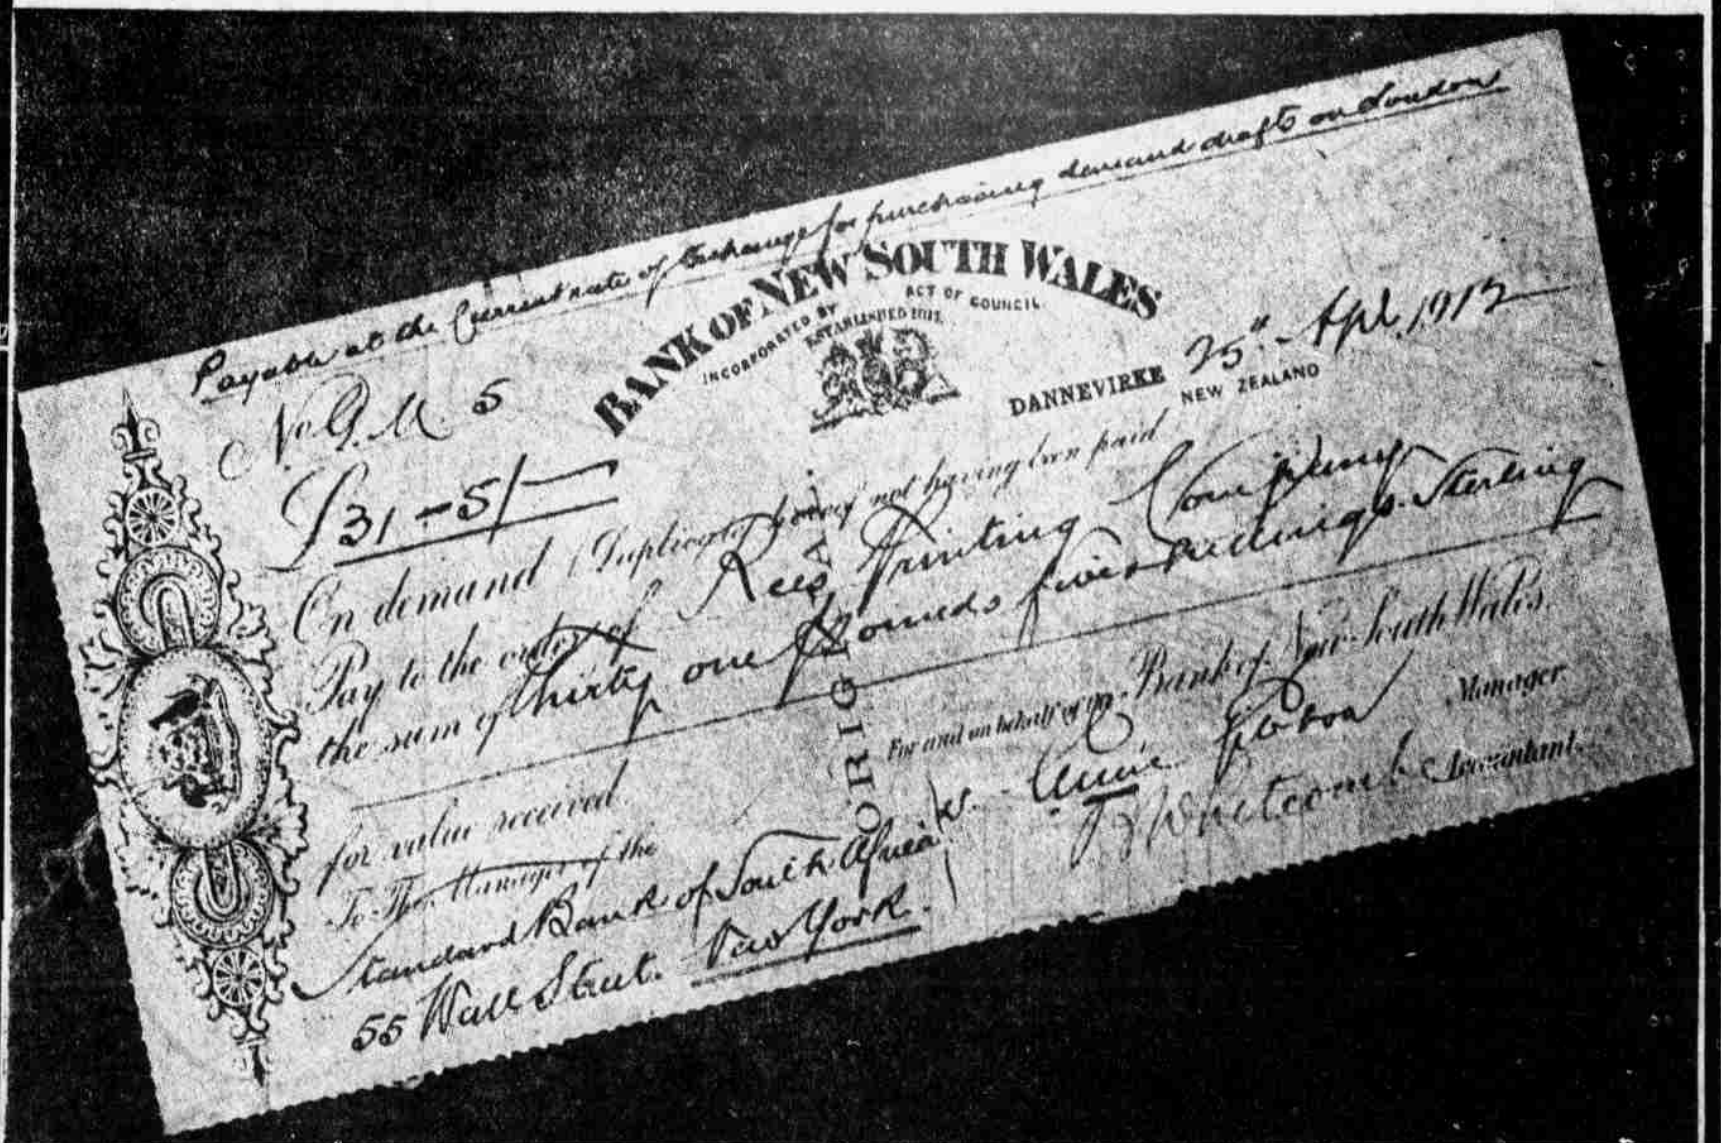 Payable at the Current rate of Exchange for purchasing demand draft on London
BANK OF NEW SOUTH WALES
INCORPORATED BY ACT OF COUNCIL.
ESTABLISHED 1817.
No G. M. 5
DANNEVIRKE 25" Apl. 1912
NEW ZEALAND
£31-5/-
On demand (Duplicate hereof not having been paid
Pay to the order of Rees Printing Company
the sum of thirty one Pounds five shillings Sterling
for value received.
ORIGINAL
For and on behalf of the Bank of New South Wales.
Manager.
Accountant.
To The Manager of the
Standard Bank of South Africa
55 Wall Street. New York.